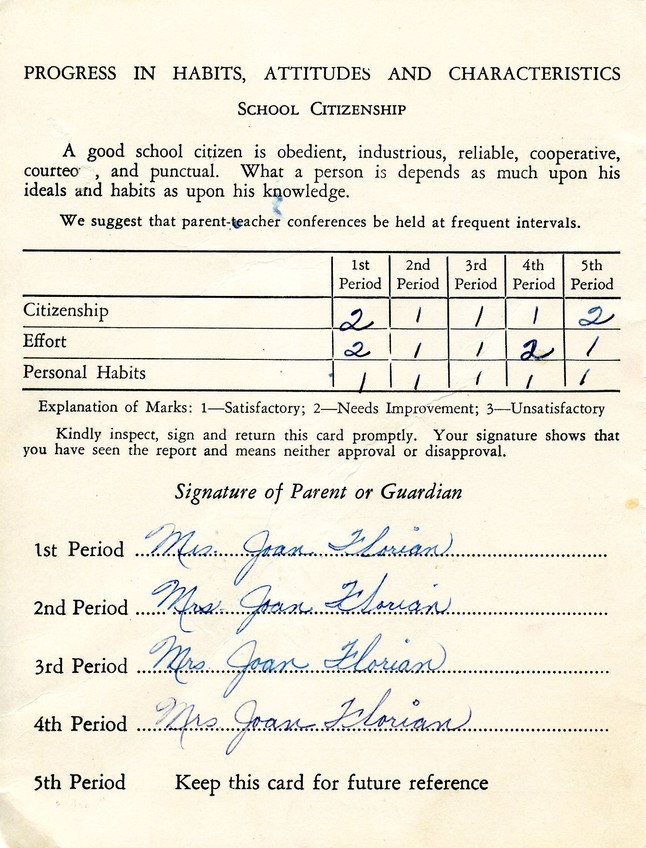 PROGRESS IN HABITS, ATTITUDES AND CHARACTERISTICS
SCHOOL CITIZENSHIP
A good school citizen is obedient, industrious, reliable, cooperative,
courteo , and punctual. What a person is depends as much upon his
ideals and habits as upon his knowledge.
We suggest that parent-teacher conferences be held at frequent intervals.
1st Period 2nd Period 3rd Period 4th Period 5th Period
Citizenship 2 1 1 1 2
Effort 2 1 1 2 1
Personal Habits 1 1 1 1 1
Explanation of Marks: 1—Satisfactory; 2—Needs Improvement; 3—Unsatisfactory
Kindly inspect, sign and return this card promptly. Your signature shows that
you have seen the report and means neither approval or disapproval.
Signature of Parent or Guardian
1st Period Mrs. Joan Florian
2nd Period Mrs. Joan Florian
3rd Period Mrs. Joan Florian
4th Period Mrs. Joan Florian
5th Period Keep this card for future reference